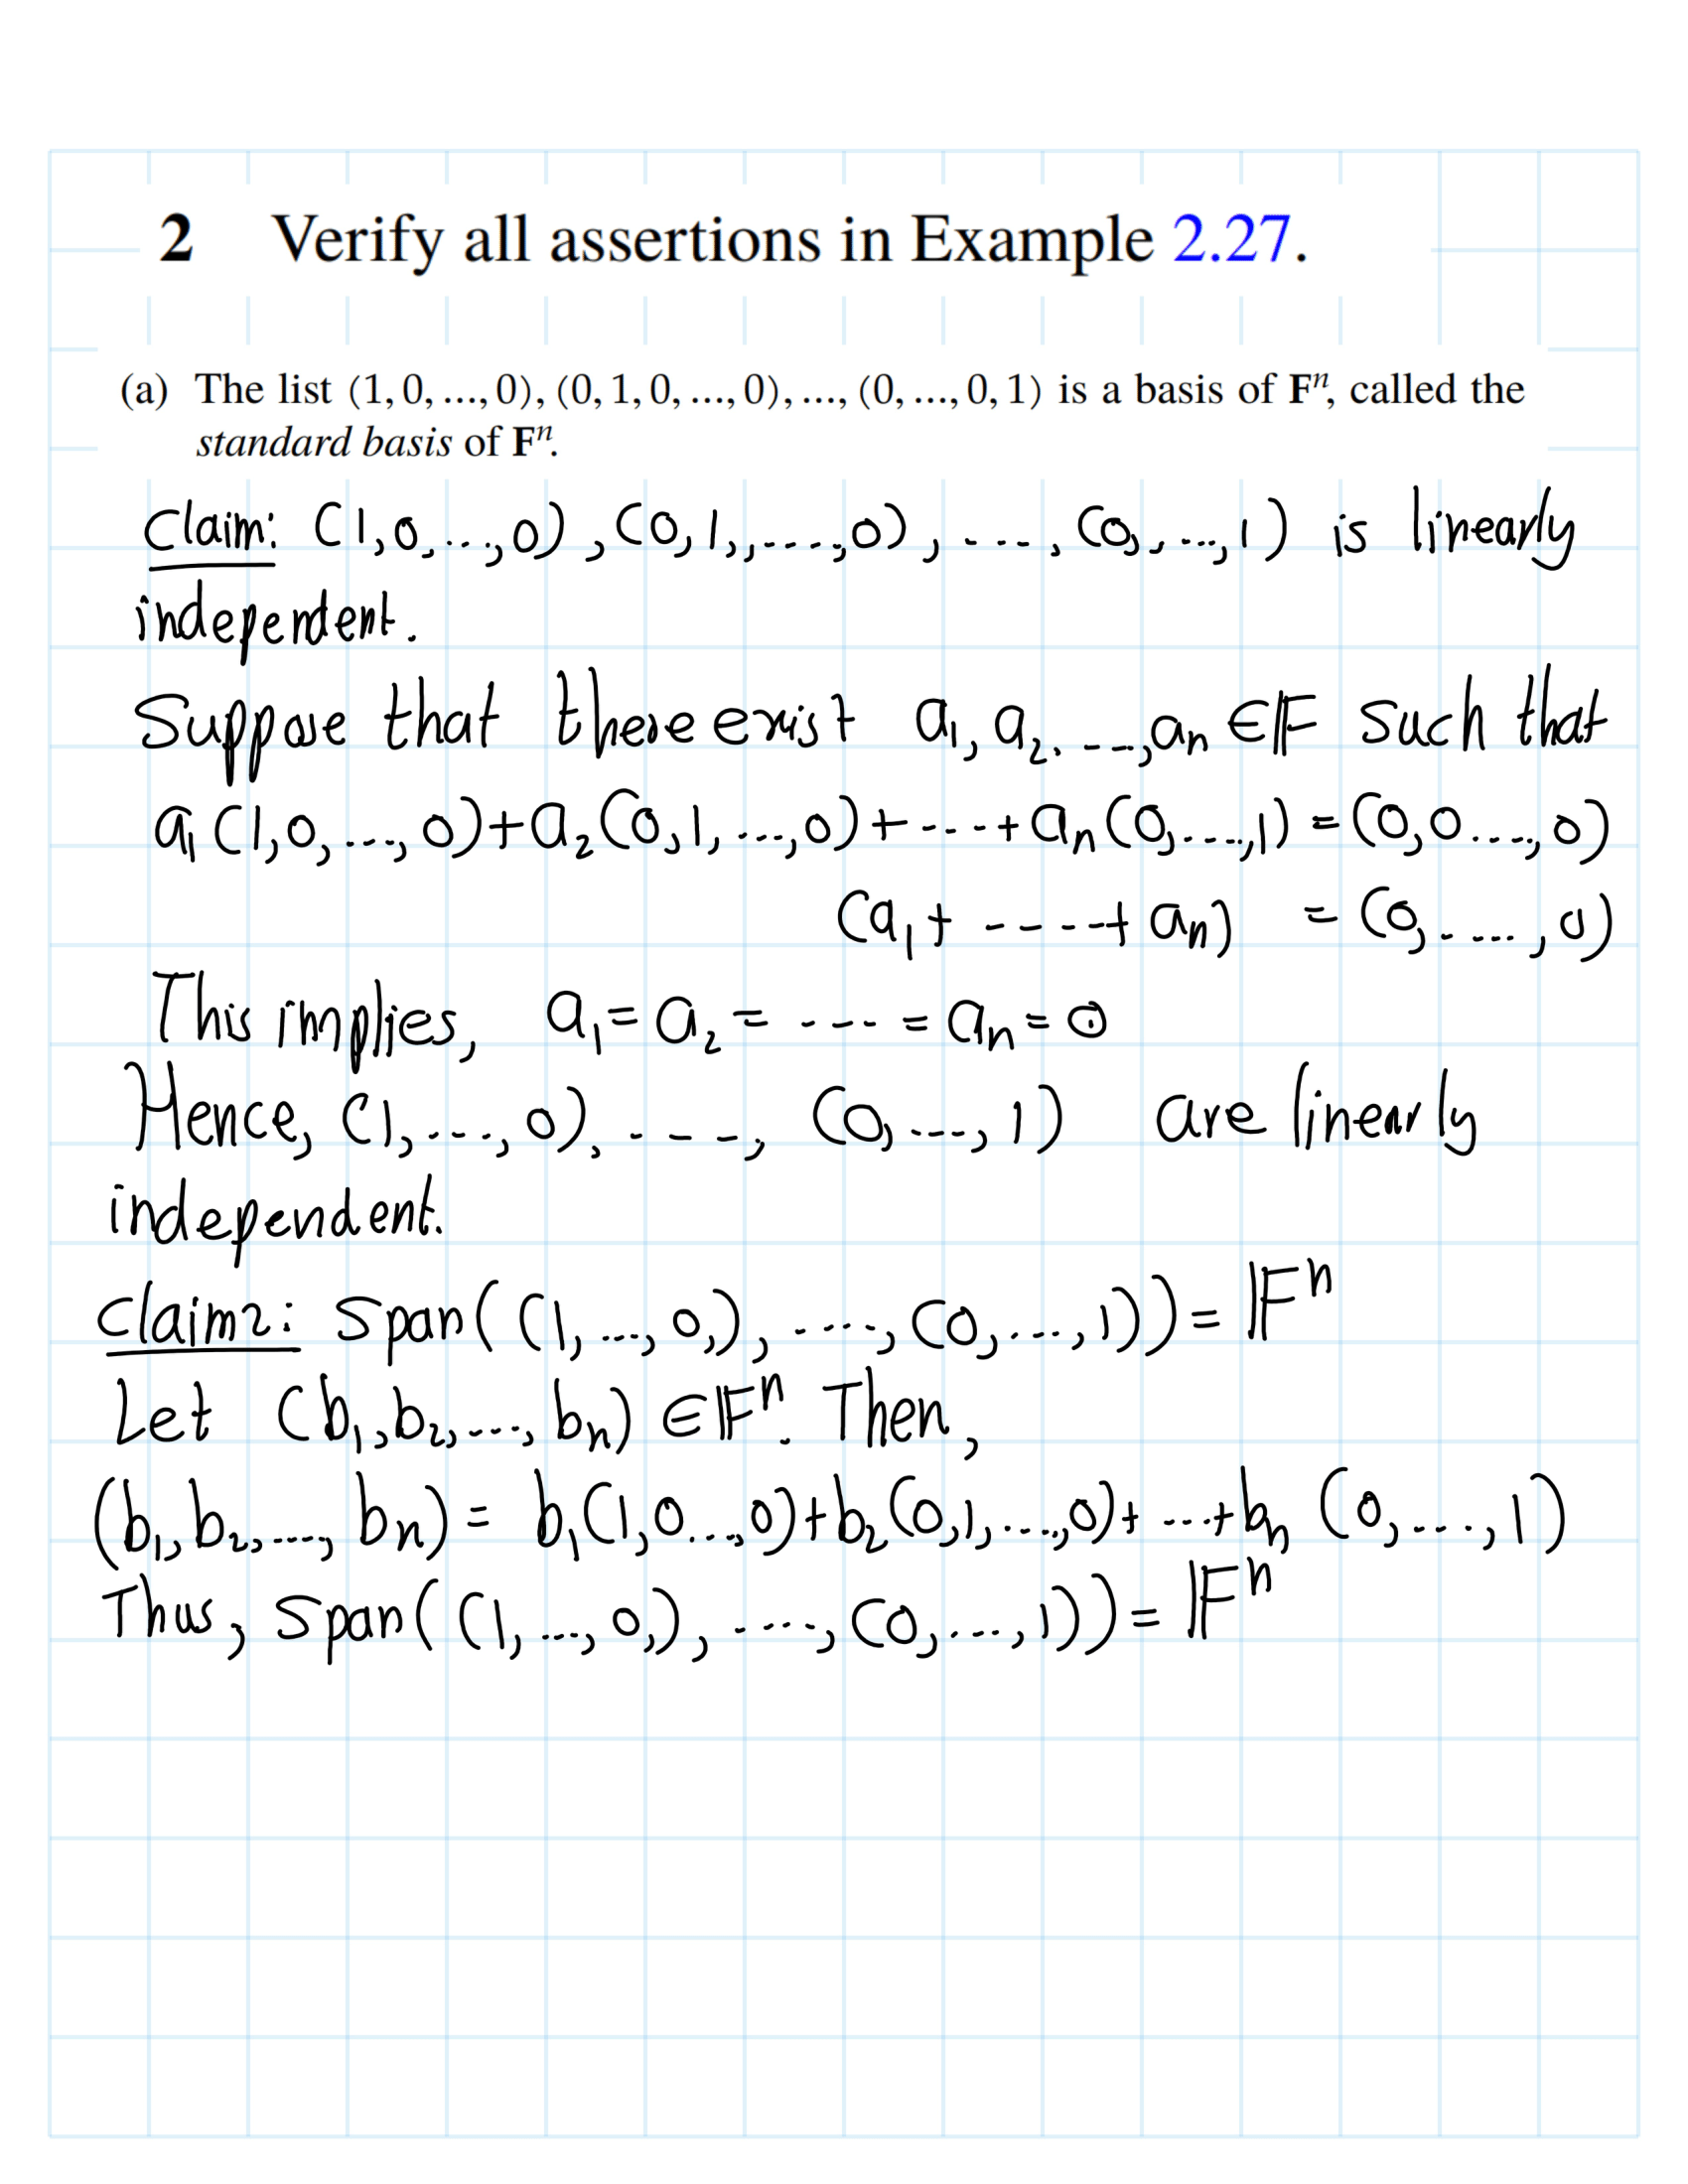 2 Verify all assertions in Example 2.27.
(a) The list (1, 0, ..., 0), (0, 1, 0, ..., 0), ..., (0, ..., 0, 1) is a basis of Fⁿ, called the
standard basis of Fⁿ.
Claim: (1,0,...,0), (0,1,,....,0), ...., (0,,...,1) is linearly
independent.
Suppose that there exist a₁, a₂, ...,aₙ ∈ 𝔽 such that
a₁(1,0,...,0)+a₂(0,1,...,0)+---+aₙ(0,...,1) = (0,0...,0)
(a₁+ ----+ aₙ) = (0,....,0)
This implies, a₁ = a₂ = ---- = aₙ = 0
Hence, (1,...,0), ----, (0,...,1) are linearly
independent.
Claim2: span((1,...,0,), ....,(0,...,1)) = 𝔽ⁿ
Let (b₁,b₂,...,bₙ) ∈ 𝔽ⁿ. Then,
(b₁,b₂,...,bₙ) = b₁(1,0...,0)+b₂(0,1,...,0)+...+bₙ(0,...,1)
Thus, span((1,...,0,), ....,(0,...,1)) = 𝔽ⁿ